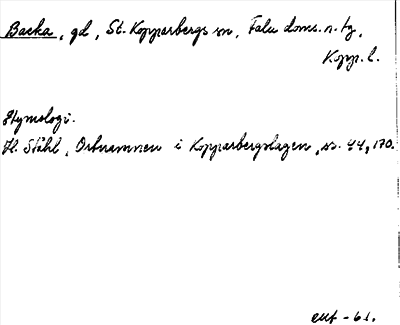 Backa, gd, St. Kopparbergs sn, Falu doms. n. tg,
Kopp. l.
Etymologi.
H. Ståhl, Ortnamnen i Kopparbergslagen, ss. 44, 170.
-61.